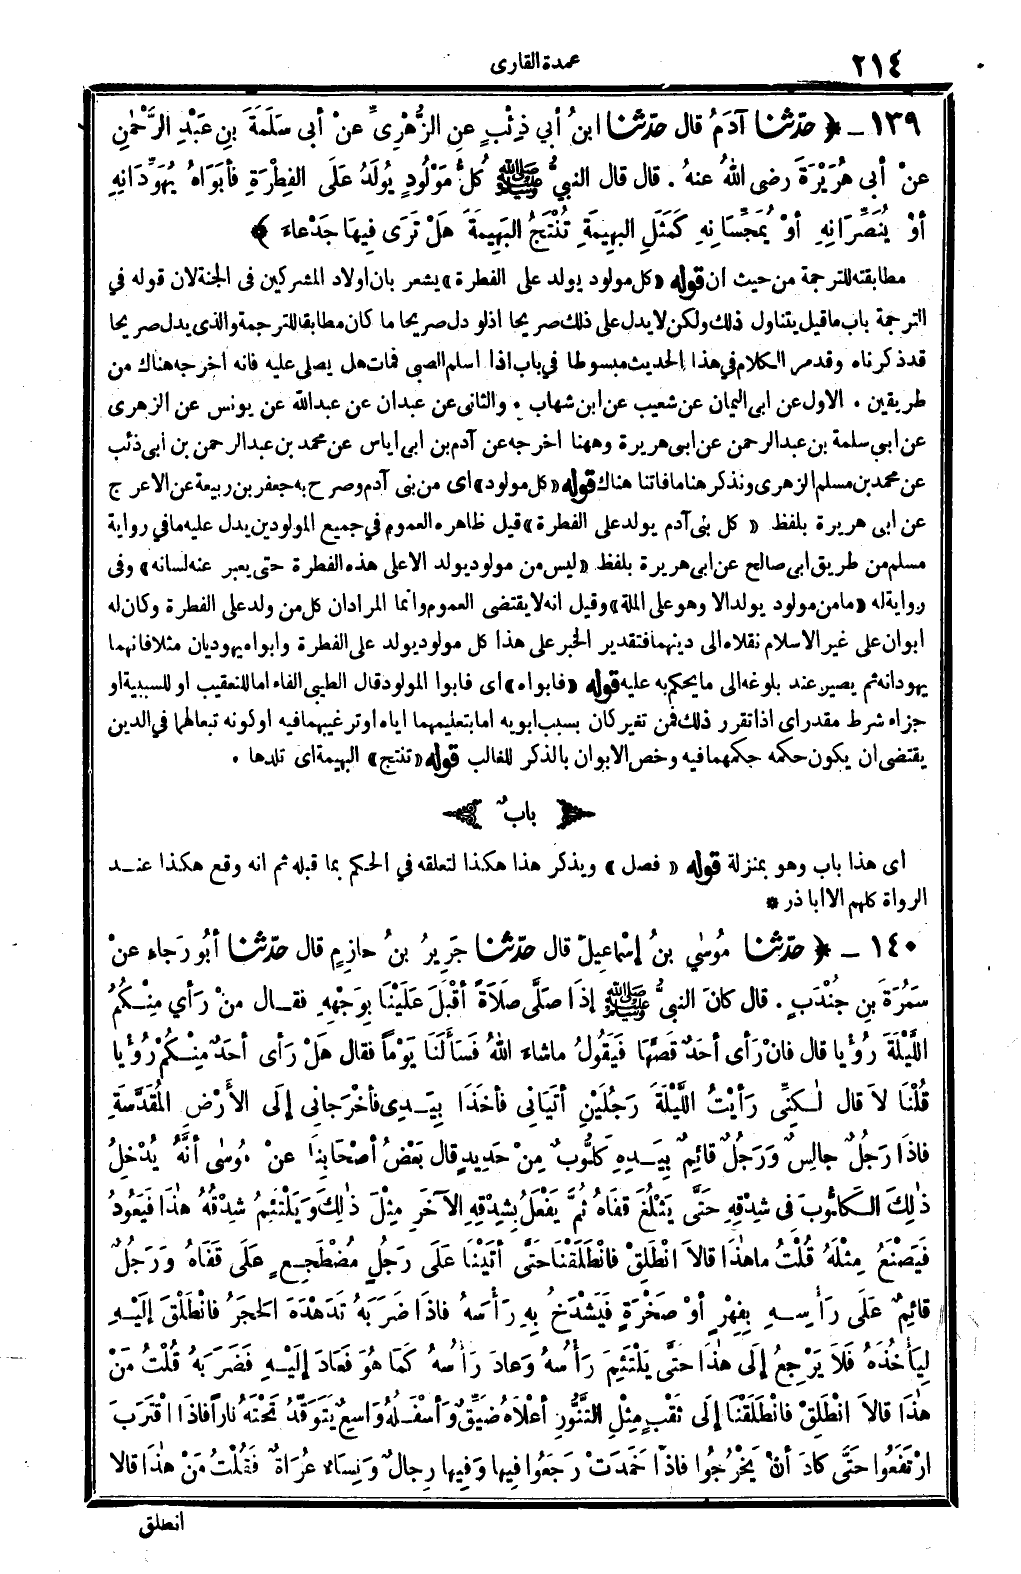 ٢١٤
عمدة القارى
١٣٩ ــ ﴿ حدّثنا آدَمُ قال حدّثنا ابنُ أبي ذِئْبٍ عنِ الزُّهْرِىِّ عنْ أبى سَلَمَةَ بنِ عَبْدِ الرَّحْمٰنِ
عنْ أبى هُرَيْرَةَ رضى اللهُ عنهُ . قال قال النبيُّ ﷺ كُلُّ مَوْلُودٍ يُولَدُ عَلَى الفِطْرَةِ فأبَوَاهُ يُهَوِّدَانِهِ
أوْ يُنَصِّرَانِهِ أوْ يُمَجِّسَانِهِ كَمَثَلِ البهِيمَةِ تُنْتَجُ البَهِيمَةَ هَلْ تَرَى فِيهَا جَدْعاءَ ﴾
مطابقته للترجمة من حيث ان قوله «كل مولود يولد على الفطرة» يشعر بان اولاد المشركين فى الجنة لان قوله في
الترجمة باب ما قيل يتناول ذلك ولكن لا يدل على ذلك صريحا اذلو دل صريحا ما كان مطابقا للترجمة والذى يدل صريحا
قد ذكرناه وقد مر الكلام في هذا الحديث مبسوطا في باب اذا اسلم الصبى فمات هل يصلى عليه فانه اخرجه هناك من
طريقين . الاول عن ابى اليمان عن شعيب عن ابن شهاب . والثانى عن عبدان عن عبدالله عن يونس عن الزهرى
عن ابى سلمة بن عبدالرحمن عن ابى هريرة وههنا اخرجه عن آدم بن ابى اياس عن محمد بن عبدالرحمن بن أبى ذئب
عن محمد بن مسلم الزهرى ونذكر هنا ما فاتنا هناك قوله «كل مولود» اى من بنى آدم وصرح به جعفر بن ربيعة عن الاعرج
عن ابى هريرة بلفظ « كل بنى آدم يولد على الفطرة» قيل ظاهره العموم في جميع المولودين يدل عليه ما في رواية
مسلم من طريق ابى صالح عن ابى هريرة بلفظ «ليس من مولود يولد الا على هذه الفطرة حتى يعبر عنه لسانه» وفى
رواية له «ما من مولود يولد الا وهو على الملة» وقيل انه لا يقتضى العموم وانما المراد ان كل من ولد على الفطرة وكان له
ابوان على غير الاسلام نقلاه الى دينهما فتقدير الخبر على هذا كل مولود يولد على الفطرة وابواه يهوديان مثلا فانهما
يهودانه ثم يصير عند بلوغه الى ما يحكم به عليه قوله «فابواه» اى فابوا المولود قال الطيبى الفاء اما للتعقيب او للسببية او
جزاء شرط مقدر اى اذا تقرر ذلك فمن تغير كان بسبب ابويه اما بتعليمهما اياه او ترغيبهما فيه او كونه تبعا لهما في الدين
يقتضى ان يكون حكمه حكمهما فيه وخص الابوان بالذكر للغالب قوله «تنتج» البهيمة اى تلدها .
بابٌ
اى هذا باب وهو بمنزلة قوله « فصل » ويذكر هذا هكذا لتعلقه في الحكم بما قبله ثم انه وقع هكذا عنــد
الرواة كلهم الا ابا ذر *
١٤٠ ــ ﴿ حدّثنا مُوسٰي بنُ إسْماعِيلَ قال حدّثنا جَرِيرُ بنُ حازِمٍ قال حدّثنا أبُو رَجاءٍ عنْ
سَمُرَةَ بنِ جُنْدَبٍ . قال كانَ النبيُّ ﷺ إذَا صَلَّى صَلَاةً أقْبَلَ عَلَيْنَا بِوَجْهِهِ فقــال منْ رَأي مِنْـكُمُ
اللَّيْلَةَ رُؤْيا قال فانْ رَأى أحَدٌ قَصَّهَا فَيَقُولُ ماشاءَ اللهُ فَسَأَلَنَا يَوْماً فقال هَلْ رَأى أحَدٌ مِنْـكُمْ رُؤْيا
قُلْنَا لاَ قال لٰـكِنِّى رَأيْتُ اللَّيْلَةَ رَجُلَيْنِ أتَيَانِي فأخَذَا بِيَــدِى فأخْرَجانِي إلَى الأرْضِ المُقَدَّسَةِ
فاذَا رَجُلٌ جالِسٌ وَرَجُلٌ قائِمٌ بِيَــدِهِ كَلُّوبٌ مِنْ حَدِيدٍ قال بَعْضُ أصْحَابِنَا عنْ مُوسٰى أنَّهُ يُدْخِلُ
ذٰلِكَ الـكَلُّوبَ فى شِدْقِهِ حَتَّى يَبْلُغَ قَفاهُ ثُمَّ يَفْعَلُ بِشِدْقِهِ الآخَرِ مِثْلَ ذٰلِكَ وَيَلْتَئِمُ شِدْقُهُ هٰذَا فَيَعُودُ
فَيَصْنَعُ مِثْلَهُ قُلْتُ ماهٰذَا قالاَ انْطَلِقْ فانْطَلَقْنا حَتَّى أتَيْنَا عَلَى رَجُلٍ مُضْطَجِــعٍ عَلَى قَفَاهُ وَرَجُلٌ
قائِمٌ عَلَى رَأسِــهِ بِفِهْرٍ أوْ صَخْرَةٍ فَيَشْدَخُ بِهِ رَأْسَهُ فاذَا ضَرَبَهُ تَدَهْدَهَ الحَجَرُ فانْطَلَقَ إلَيْــهِ
لِيَأْخُذَهُ فَلاَ يَرْجِعُ إلَى هٰذَا حَتَّى يَلْتَئِمَ رَأْسُهُ وَعادَ رَأْسُهُ كَمَا هُوَ فَعَادَ إلَيْــهِ فَضَرَبَهُ قُلْتُ مَنْ
هٰذَا قالاَ انْطَلِقْ فانْطَلَقْنَا إلَى ثَقْبٍ مِثْلِ التَّنُّورِ أعْلاَهُ ضَيِّقٌ وَأسْفَــلُهُ وَاسِعٌ يَتَوَقَّدُ تَحْتَهُ ناراً فاذَا اقْتَرَبَ
ارْتَفَعُوا حَتَّى كادَ أنْ يَخْرُجُوا فاذَا خَمَدَتْ رَجَعُوا فِيها وَفِيها رِجالٌ وَنِساءٌ عُرَاةٌ فَقُلْتُ مَنْ هٰذَا قالا
انطلق